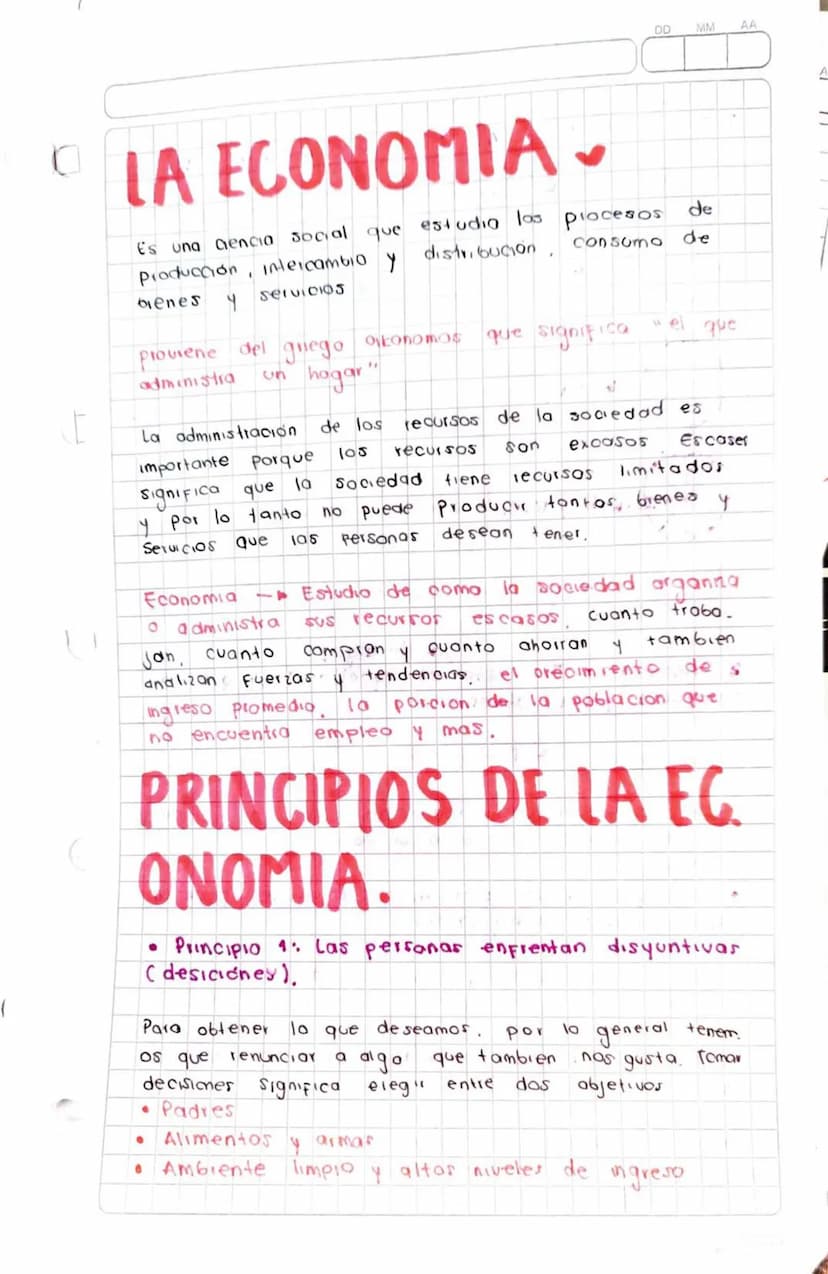 DD MM AA
LA ECONOMIA
Es una ciencia social que estudia los procesos de
producción, intercambio y distribución, consumo de
bienes y servicios
proviene del griego oikonomos que significa "el que
administra un hogar"
La administración de los recursos de la sociedad es
importante porque los recursos son excasos. Escases
significa que la sociedad tiene recursos limitados
y por lo tanto no puede producir tantos, bienes y
servicios que las personas desean tener.
Economia → Estudio de como la sociedad organiza
o administra sus recursos escasos, cuanto traba-
jan, cuanto compran y cuanto ahorran y tambien
analizan fuerzas y tendencias, el crecimiento de
ingreso promedio, la porcion de la poblacion que
no encuentra empleo y mas.
PRINCIPIOS DE LA EC.
ONOMIA.
• Principio 1: Las personas enfrentan disyuntivas
(desiciónes).
Para obtener lo que deseamos, por lo general tenem.
os que renunciar a algo que tambien nos gusta. Tomar
decisiones significa elegir entre dos objetivos
• Padres
• Alimentos y armas
• Ambiente limpio y altos niveles de ingreso